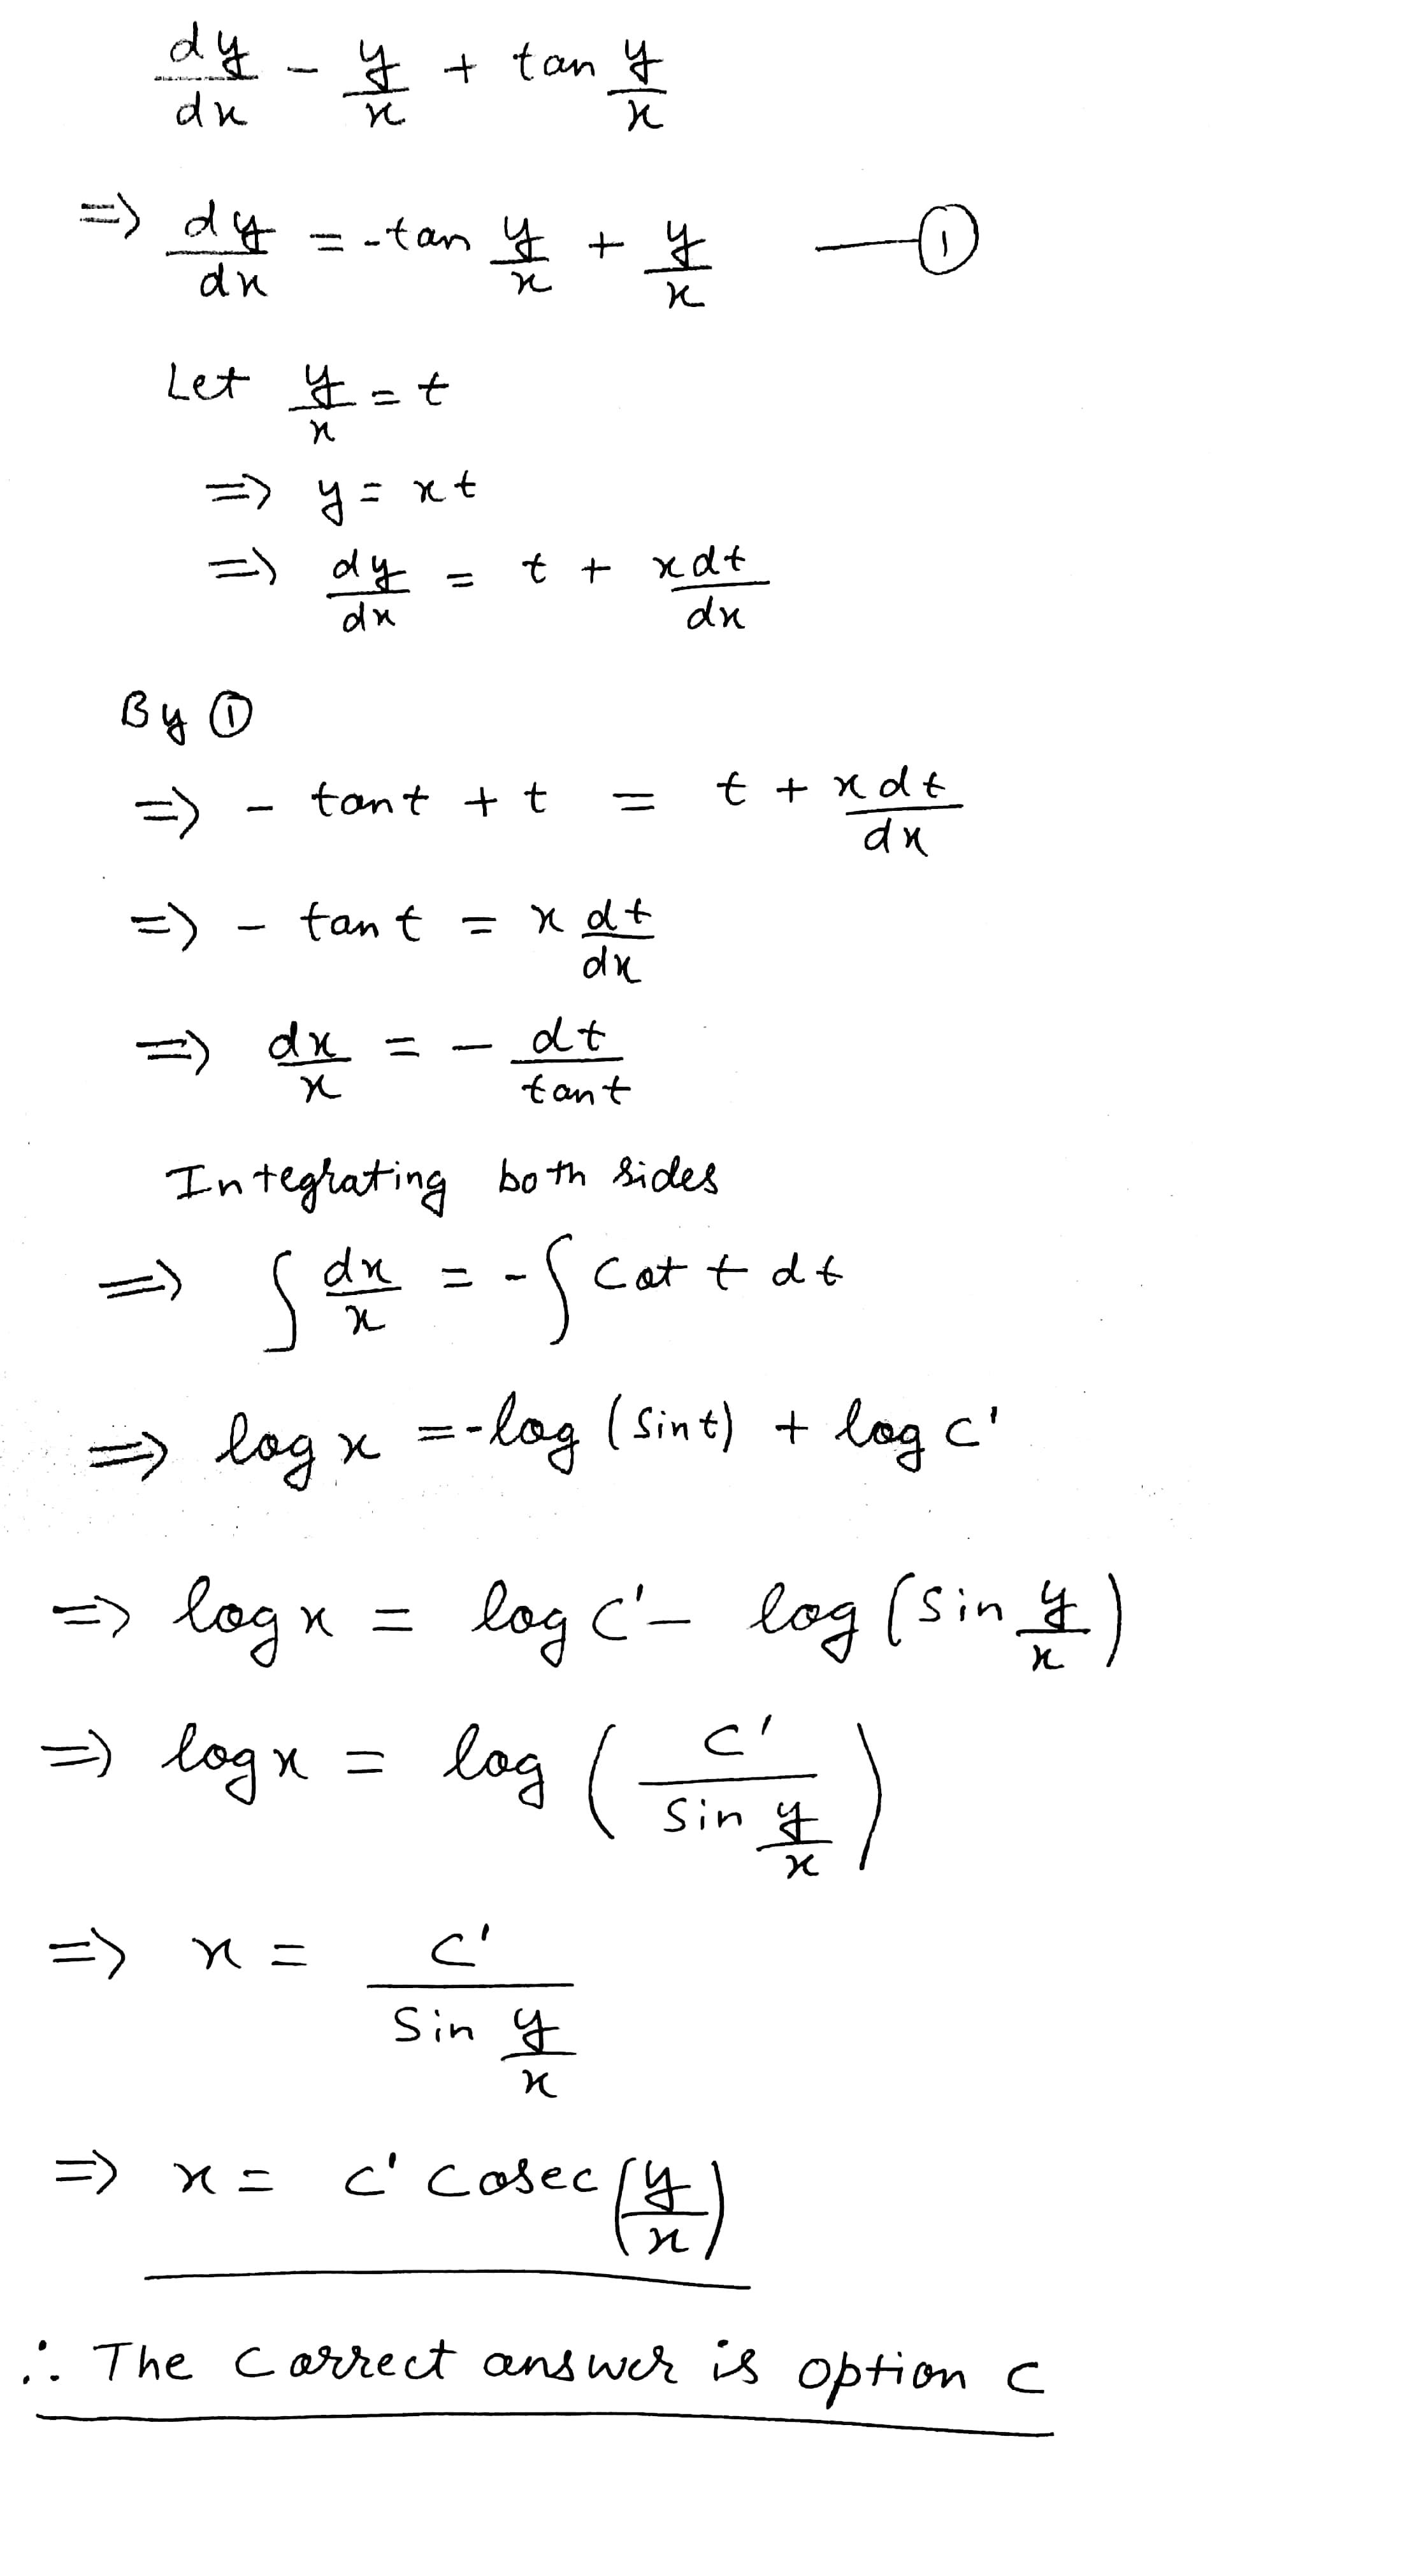 dy/dx - y/x + tan y/x
=> dy/dx = -tan y/x + y/x —①
Let y/x = t
=> y = xt
=> dy/dx = t + xdt/dx
By ①
=> - tant + t = t + xdt/dx
=> - tan t = x dt/dx
=> dx/x = - dt/tant
Integrating both sides
=> ∫ dx/x = -∫ cot t dt
=> log x = -log (sint) + log c'
=> log x = log c' - log (sin y/x)
=> log x = log (c'/sin y/x)
=> x = c'/sin y/x
=> x = c' cosec (y/x)
∴ The correct answer is option c